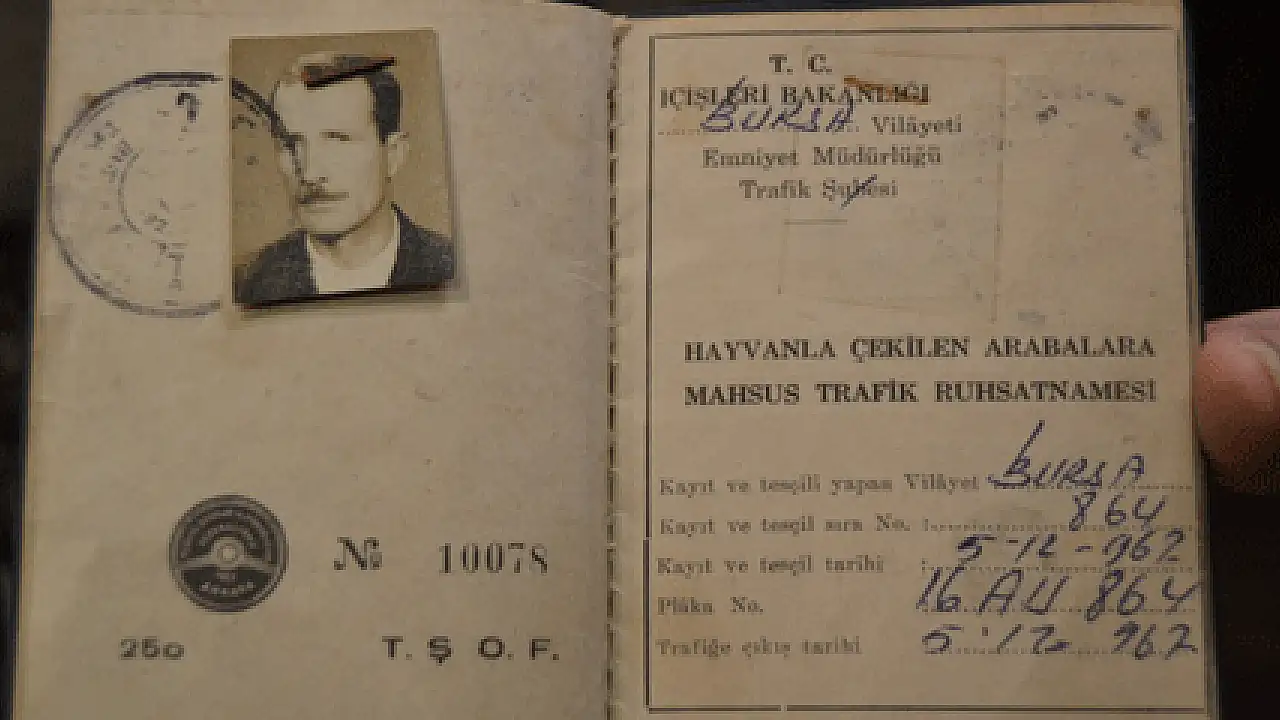 № 10078
250 T. Ş O. F.
T. C.
İÇİŞLERİ BAKANLIĞI
BURSA Vilâyeti
Emniyet Müdürlüğü
Trafik Şubesi
HAYVANLA ÇEKİLEN ARABALARA
MAHSUS TRAFİK RUHSATNAMESİ
Kayıt ve tesçili yapan Vilâyet BURSA
Kayıt ve tesçil sıra No. : 864
Kayıt ve tesçil tarihi : 5-12-962
Plâka No. 16 AU 864
Trafiğe çıkış tarihi 5.12-962